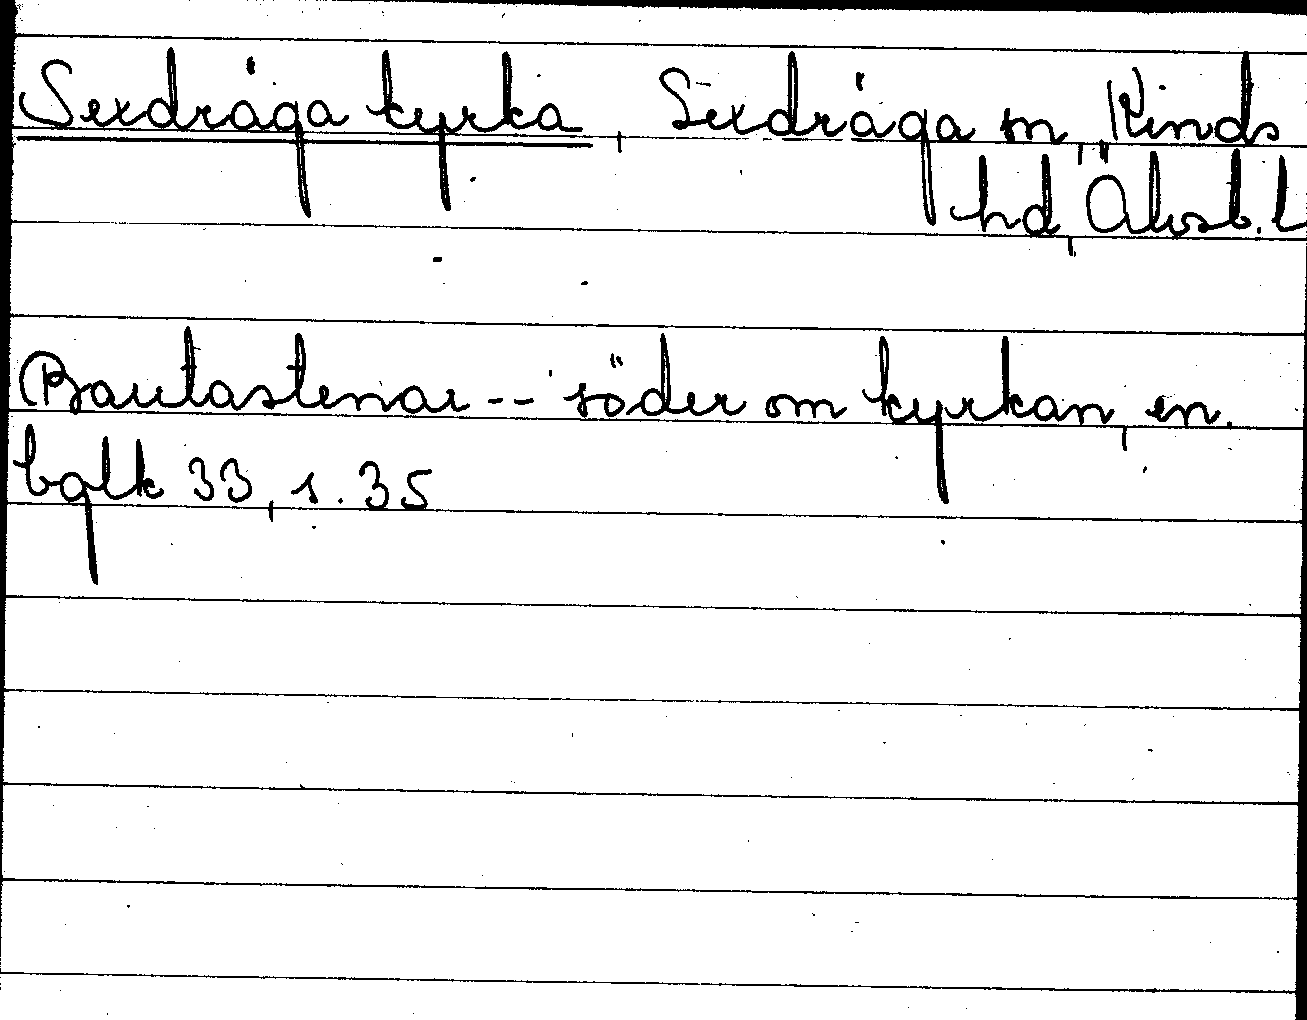 Sexdråga kyrka, Sexdråga sn, Kinds
hd, Älvsb. l
Bautastenar -- söder om kyrkan, en.
bglk 33, s. 35